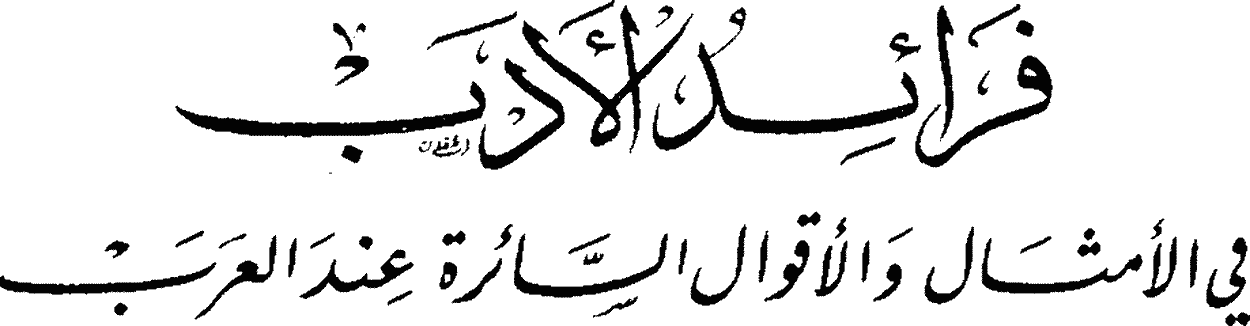 فَرَائِدُ الأَدَبْ
في الأمثَال وَالأقوال السَّائرة عِندَ العَرَبْ